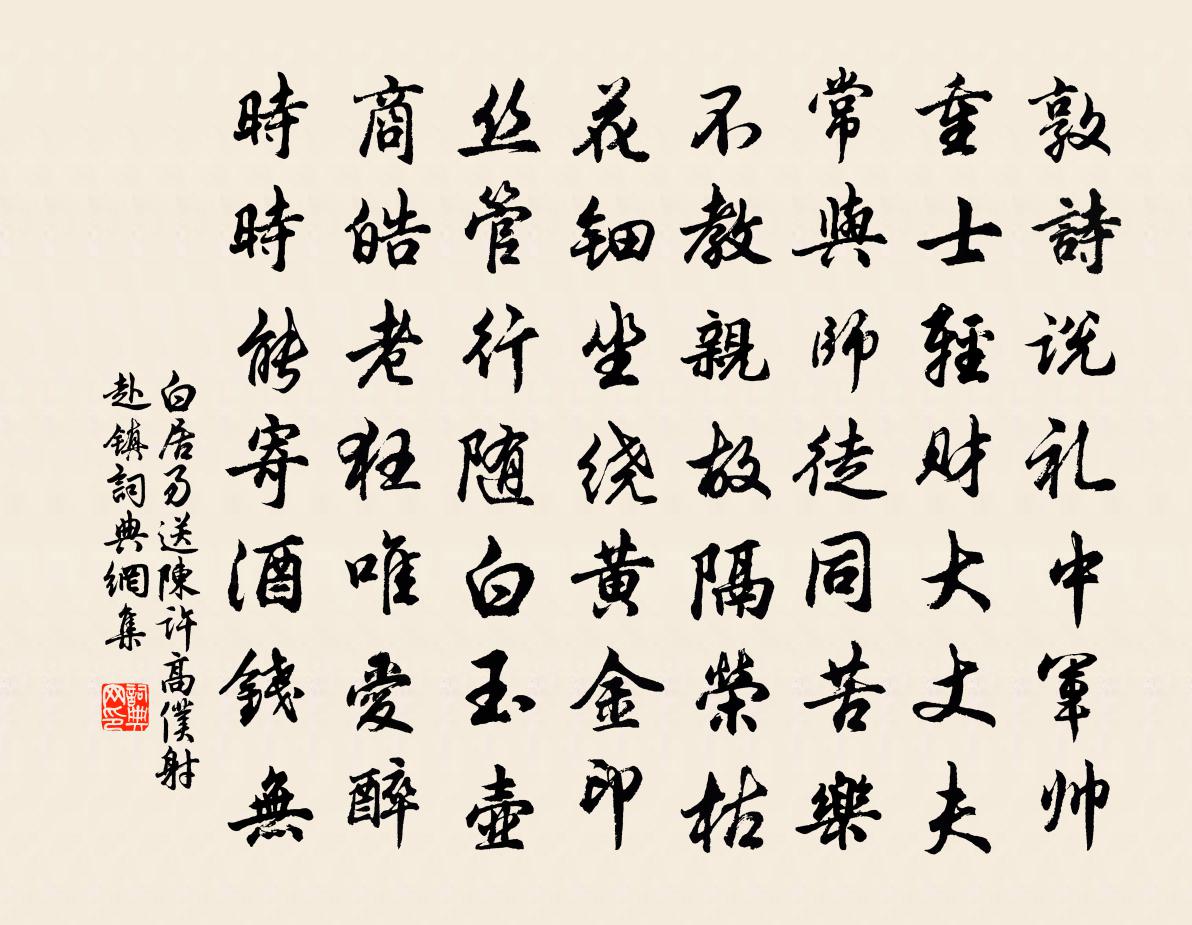 敦詩説礼中軍帅
重士輕财大丈夫
常與師徒同苦樂
不教親故隔榮枯
花钿坐绕黄金印
丝管行随白玉壶
商皓老狂唯愛醉
時時能寄酒錢無
白居易送陳许高僕射
赴鎮詞典網集
詞典
网印